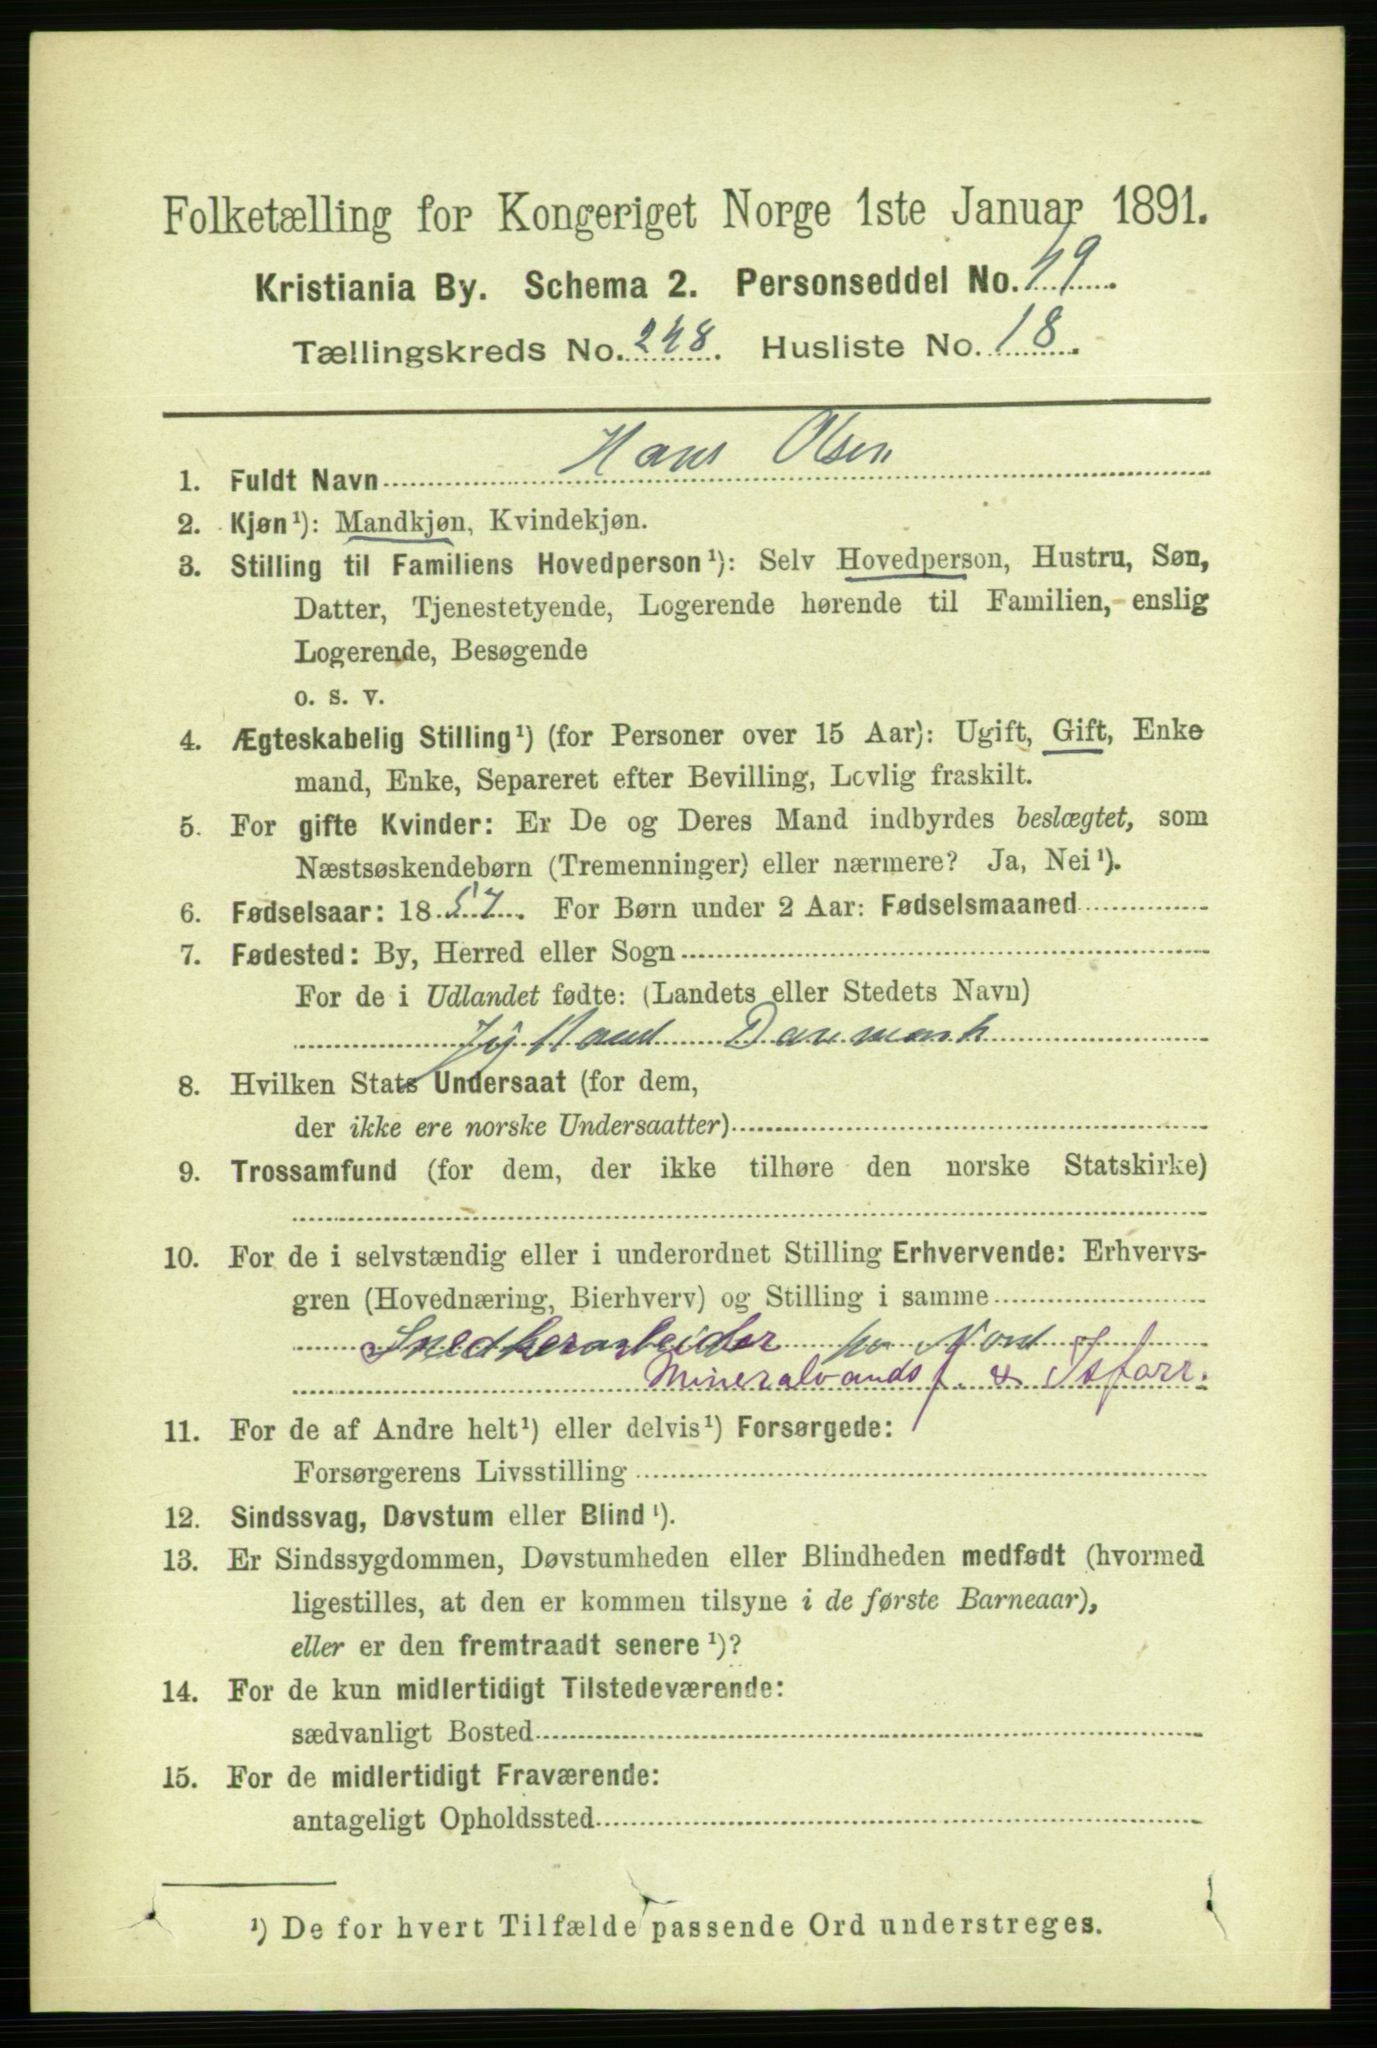 Folketælling for Kongeriget Norge 1ste Januar 1891.
Kristiania By. Schema 2. Personseddel No. 49.
Tællingskreds No. 248. Husliste No. 18.
1. Fuldt Navn Hans Olsen
2. Kjøn¹): Mandkjøn, Kvindekjøn.
3. Stilling til Familiens Hovedperson¹): Selv Hovedperson, Hustru, Søn,
Datter, Tjenestetyende, Logerende hørende til Familien, enslig
Logerende, Besøgende
o. s. v.
4. Ægteskabelig Stilling¹) (for Personer over 15 Aar): Ugift, Gift, Enke
mand, Enke, Separeret efter Bevilling, Lovlig fraskilt.
5. For gifte Kvinder: Er De og Deres Mand indbyrdes beslægtet, som
Næstsøskendebørn (Tremenninger) eller nærmere? Ja, Nei¹).
6. Fødselsaar: 1857. For Børn under 2 Aar: Fødselsmaaned
7. Fødested: By, Herred eller Sogn
For de i Udlandet fødte: (Landets eller Stedets Navn)
Jylland Danmark
8. Hvilken Stats Undersaat (for dem,
der ikke ere norske Undersaatter)
9. Trossamfund (for dem, der ikke tilhøre den norske Statskirke)
10. For de i selvstændig eller i underordnet Stilling Erhvervende: Erhvervs-
gren (Hovednæring, Bierhverv) og Stilling i samme
Snedkerarbeider
Mineralvandsf. &
11. For de af Andre helt¹) eller delvis¹) Forsørgede:
Forsørgerens Livsstilling
12. Sindssvag, Døvstum eller Blind¹).
13. Er Sindssygdommen, Døvstumheden eller Blindheden medfødt (hvormed
ligestilles, at den er kommen tilsyne i de første Barneaar),
eller er den fremtraadt senere¹)?
14. For de kun midlertidigt Tilstedeværende:
sædvanligt Bosted
15. For de midlertidigt Fraværende:
antageligt Opholdssted
¹) De for hvert Tilfælde passende Ord understreges.